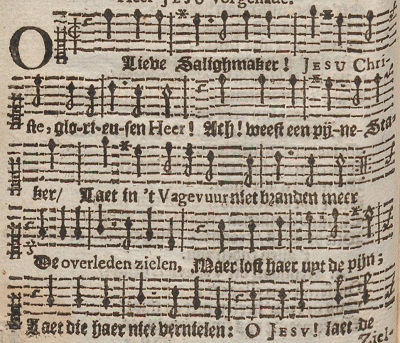 Heer JESU vergemide.
O Lieve Salighmaker! JESU Chri-
ste, glo-ri-eu-sen Heer! Ach! weest een pij-ne-Sta-
ker/ Laet in 't Vagevuur niet branden meer
De overleden zielen, Maer lost haer uyt de pijn;
Laet die haer niet vernielen: O JESU! laet de
Ziel-